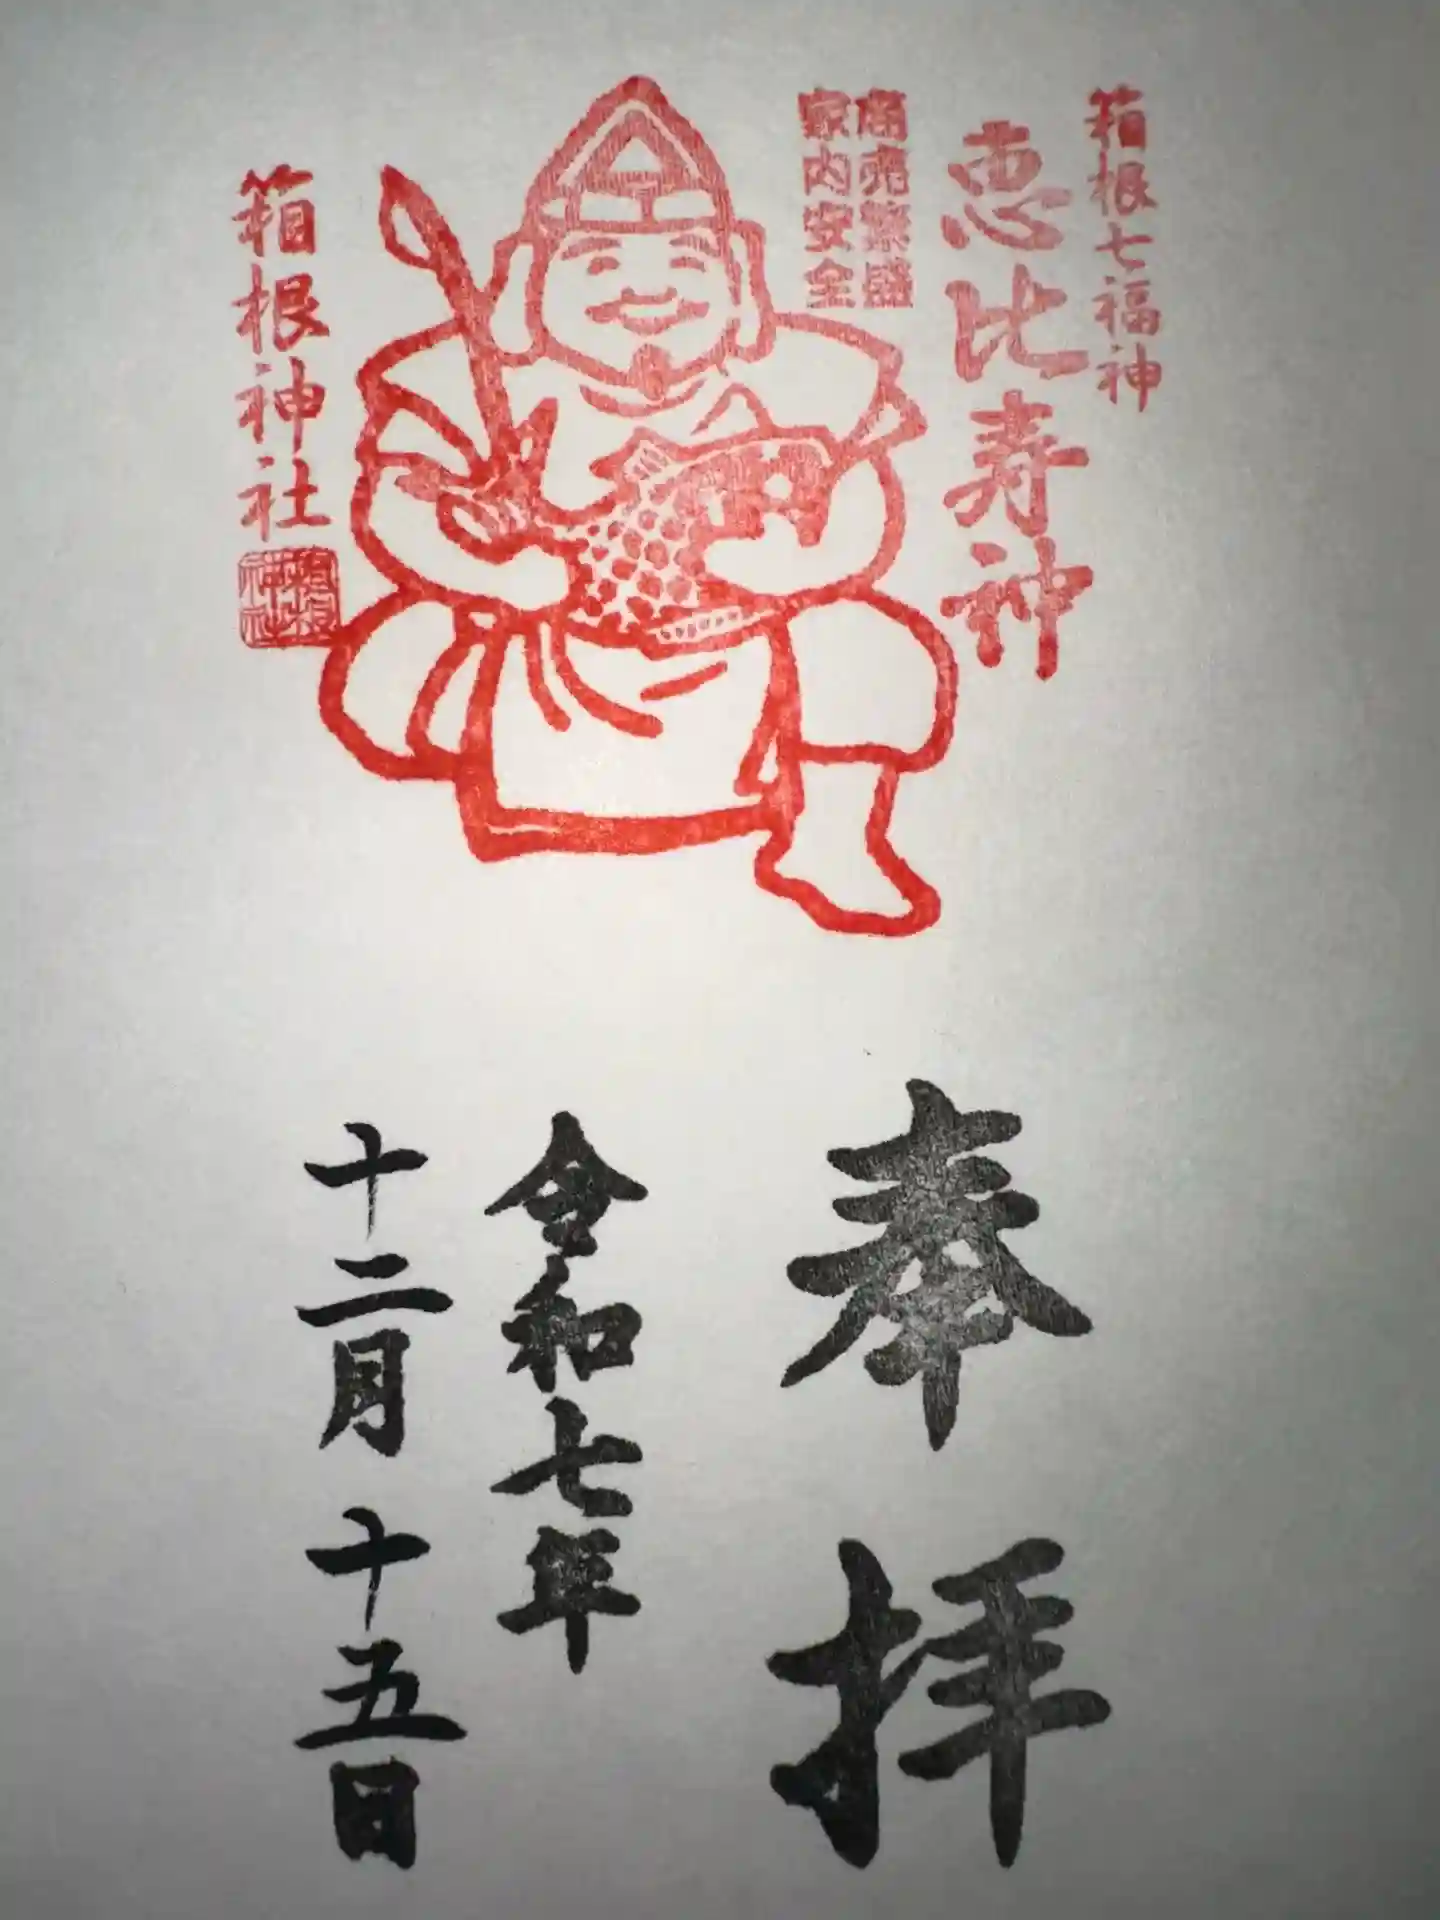 箱根七福神
恵比寿神
商売繁盛
家内安全
箱根神社
箱根神社
奉拝
令和七年
十二月十五日